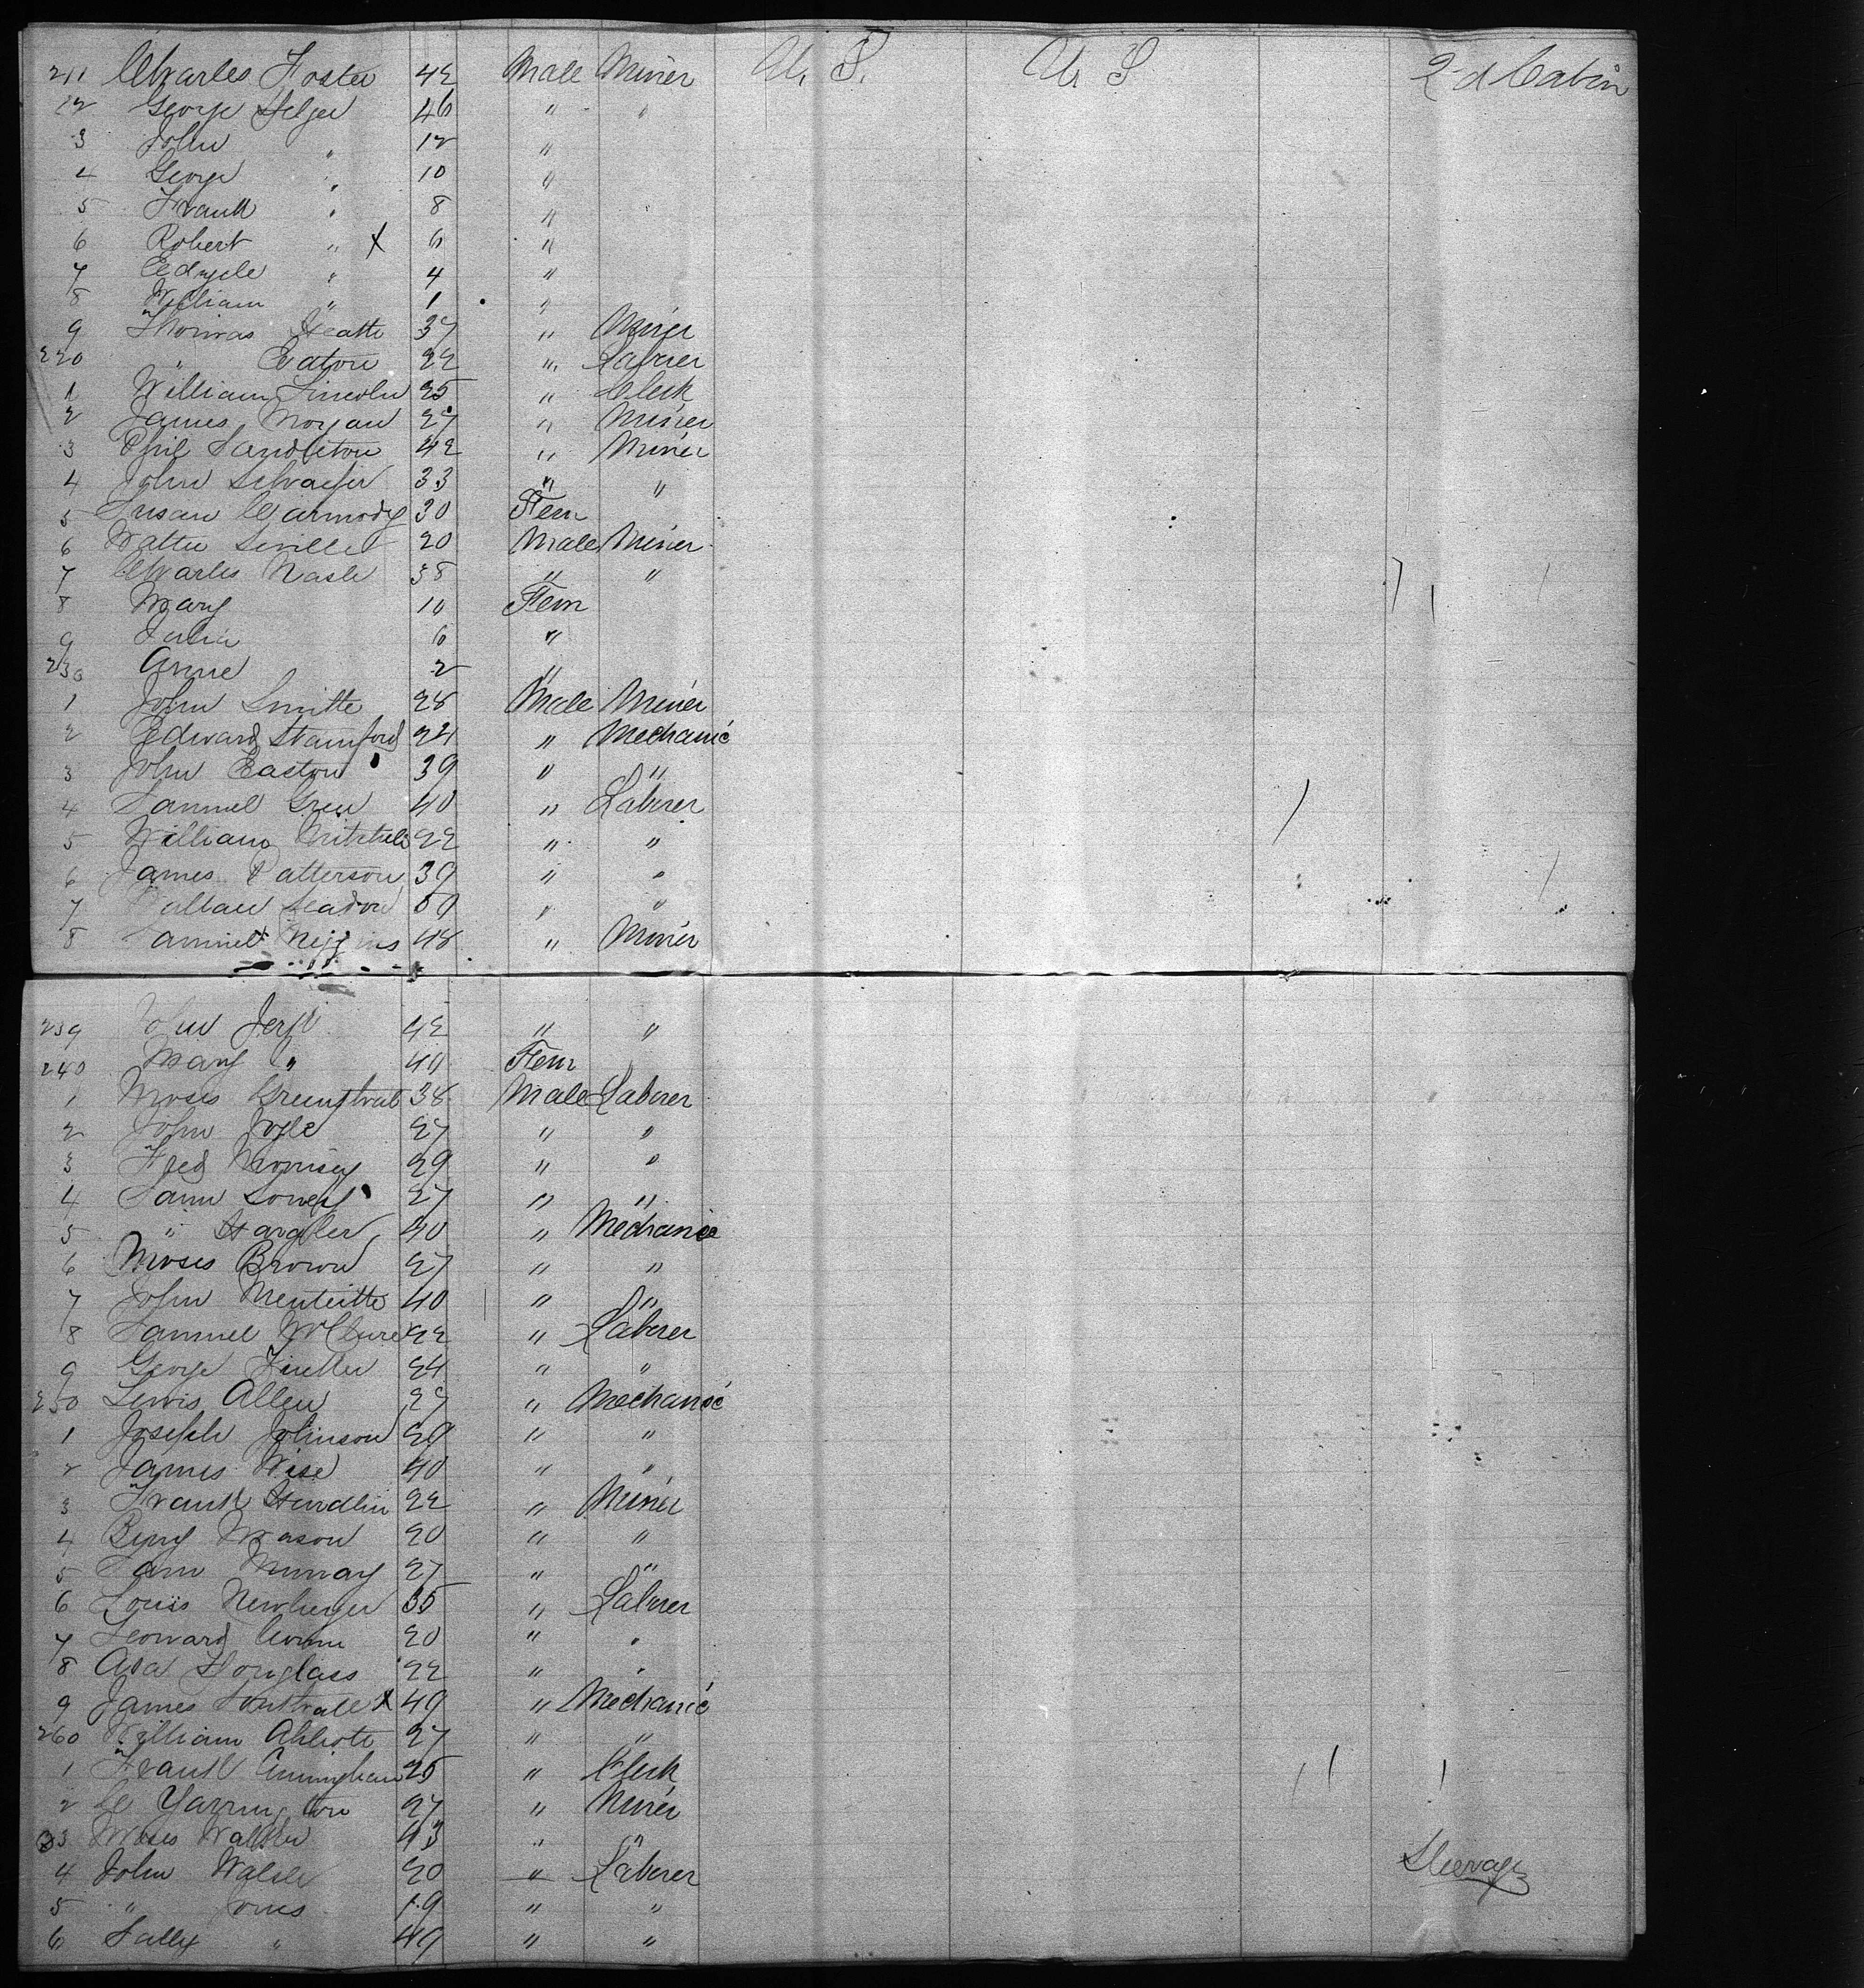 211 Charles Foster 42 Male Miner U. S. U S 2d Cabin
12 George Selger 46 " "
3 John " 12 "
4 George " 10 "
5 Frank " 8 "
6 Robert " X 6 "
7 " 4 "
8 William " 1 "
9 Thomas Heath 37 " Miner
220 " Eaton 22 " Laberer
1 William Lincoln 25 " Clerk
2 James Morgan 27 " Miner
3 Phil Sandleton 42 " Miner
4 John Schaefer 33 " "
5 Susan Carmody 30 Fem
6 Walter Seville 20 Male Miner
7 Charles Nash 38 " "
8 Mary 10 Fem
9 Julia 6 "
230 Anne 2 "
1 John Smith 28 Male Miner
2 Edward Stamford 24 " Mechanic
3 John Easton 39 " "
4 Samuel Green 40 " Laberer
5 William Mitchels 22 " "
6 James Patterson 39 " "
7 59 " "
8 Samuel Higgins 48 " Miner
239 John 42 " "
240 Mary " 40 Fem "
1 Moses 38 Male Laberer
2 John 27 " "
3 Fred 29 " "
4 Sam Lowery 27 " "
5 " 40 " Mechanic
6 Moses Brown 27 " "
7 John Menteith 40 " "
8 Samuel McClure 22 " Laberer
9 George 24 " "
250 Lewis Allen 27 " Mechanic
1 Joseph Johnson 29 " "
2 James Wise 40 " "
3 Frank Handlin 22 " Miner
4 Benj Mason 20 " "
5 Sam Murray 27 " "
6 Louis Newberger 35 " Laberer
7 Leonard 20 " "
8 Asa Douglass 22 " "
9 James X 49 " Mechanic
260 William Abbott 27 " "
1 Frank Cunningham 25 " Clerk
2 C Yarrington 27 " Miner
3 Moses Walker 43 " "
4 John Walsh 20 " Laberer Steerage
5 " Jones 19 " "
6 Sally " 49 " "